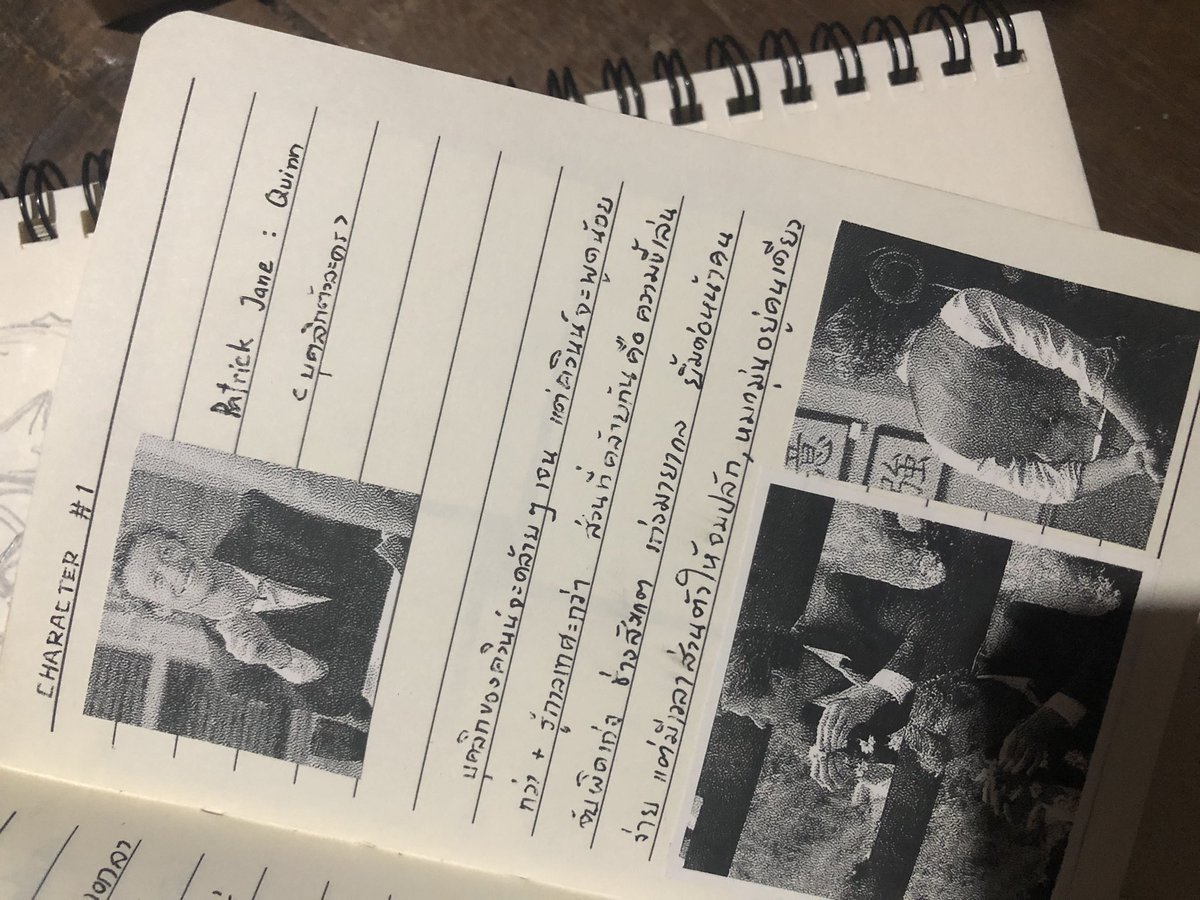 CHARACTER #1
Patrick Jane : Quinn
(บุคลิกตัวละคร)
บุคลิกของควินน์จะคล้ายๆเจน แต่ควินน์จะพูดน้อย
กว่า + รู้กาลเทศะกว่า ส่วนที่คล้ายกันคือความขี้เล่น
จับผิดเก่ง ช่างสังเกต เก่งมายากล ยิ้มต่อหน้าคน
ง่าย แต่มีเวลาส่วนตัวให้จมปลัก, หมกมุ่นอยู่คนเดียว
強